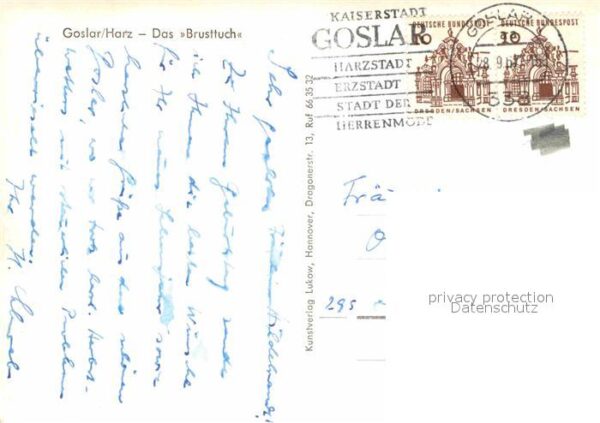 Goslar/Harz – Das »Brusttuch«
KAISERSTADT
GOSLAR
HARZSTADT
ERZSTADT
STADT DER
HERRENMODE
GOSLAR
338
DEUTSCHE BUNDESPOST
10
DRESDEN/SACHSEN
DEUTSCHE BUNDESPOST
10
DRESDEN/SACHSEN
Kunstverlag Lukow, Hannover, Dragonerstr. 13, Ruf 66 35 32
Sehr geehrtes Fräulein Hildebrandt!
Zu Ihrem Geburtstag sende
ich Ihnen die besten Wünsche
für Ihr neues Lebensjahr sowie
herzliche Grüße aus dem schönen
Goslar, wo wir trotz
werden.
Ihr H.
Frä
295
privacy protection
Datenschutz